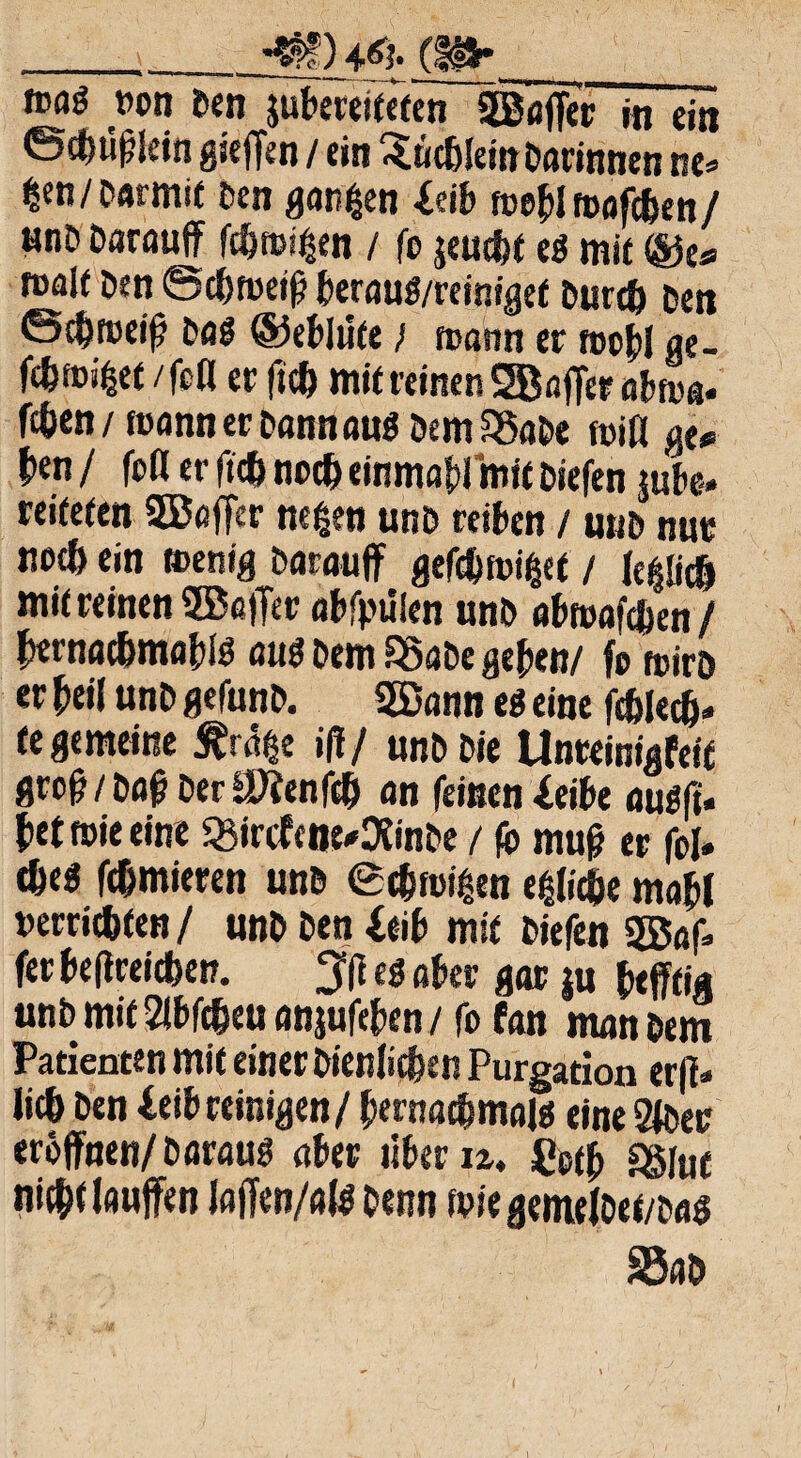 ) 463. (
was von den zubereiteten Wasser in ein
Schüßlein giessen / ein Tüchlein darinnen ne⸗
tzen/darmit den gantzen Leib wohl waschen/
und darauff schwitzen / so zeucht es mit Ge⸗
walt den Schweiß heraus/reiniget durch den
Schweiß das Geblüte / wann er wohl ge-
schwitzet / soll er sich mit reinen Wasser abwa⸗
schen / wann er dann aus dem Bade will ge⸗
hen / soll er sich noch einmahl mit diesen zube⸗
reiteten Wasser netzen und reiben / und nur
noch ein wenig darauff geschwitzet / letzlich
mit reinen Wasser abspülen und abwaschen /
hernachmahls aus dem Bade gehen/ so wird
er heil und gesund. Wann es eine schlech⸗
te gemeine Krätze ist/ und die Unreinigkeit
groß / daß der Mensch an seinen Leibe aussi⸗
het wie eine Birckene⸗Rinde / so muß er sol⸗
ches schmieren und Schwitzen etzliche mahl
verrichten / und den Leib mit diesen Was⸗
ser bestreichen. Ist es aber gar zu hefftig
und mit Abscheu anzusehen / so kan man dem
Patienten mit einer dienlichen Purgation erst⸗
lich den Leib reinigen / hernachmals eine Ader
eröffnen/daraus aber über 12. Loth Blut
nicht lauffen lassen/als denn wie gemeldet/das
Bad